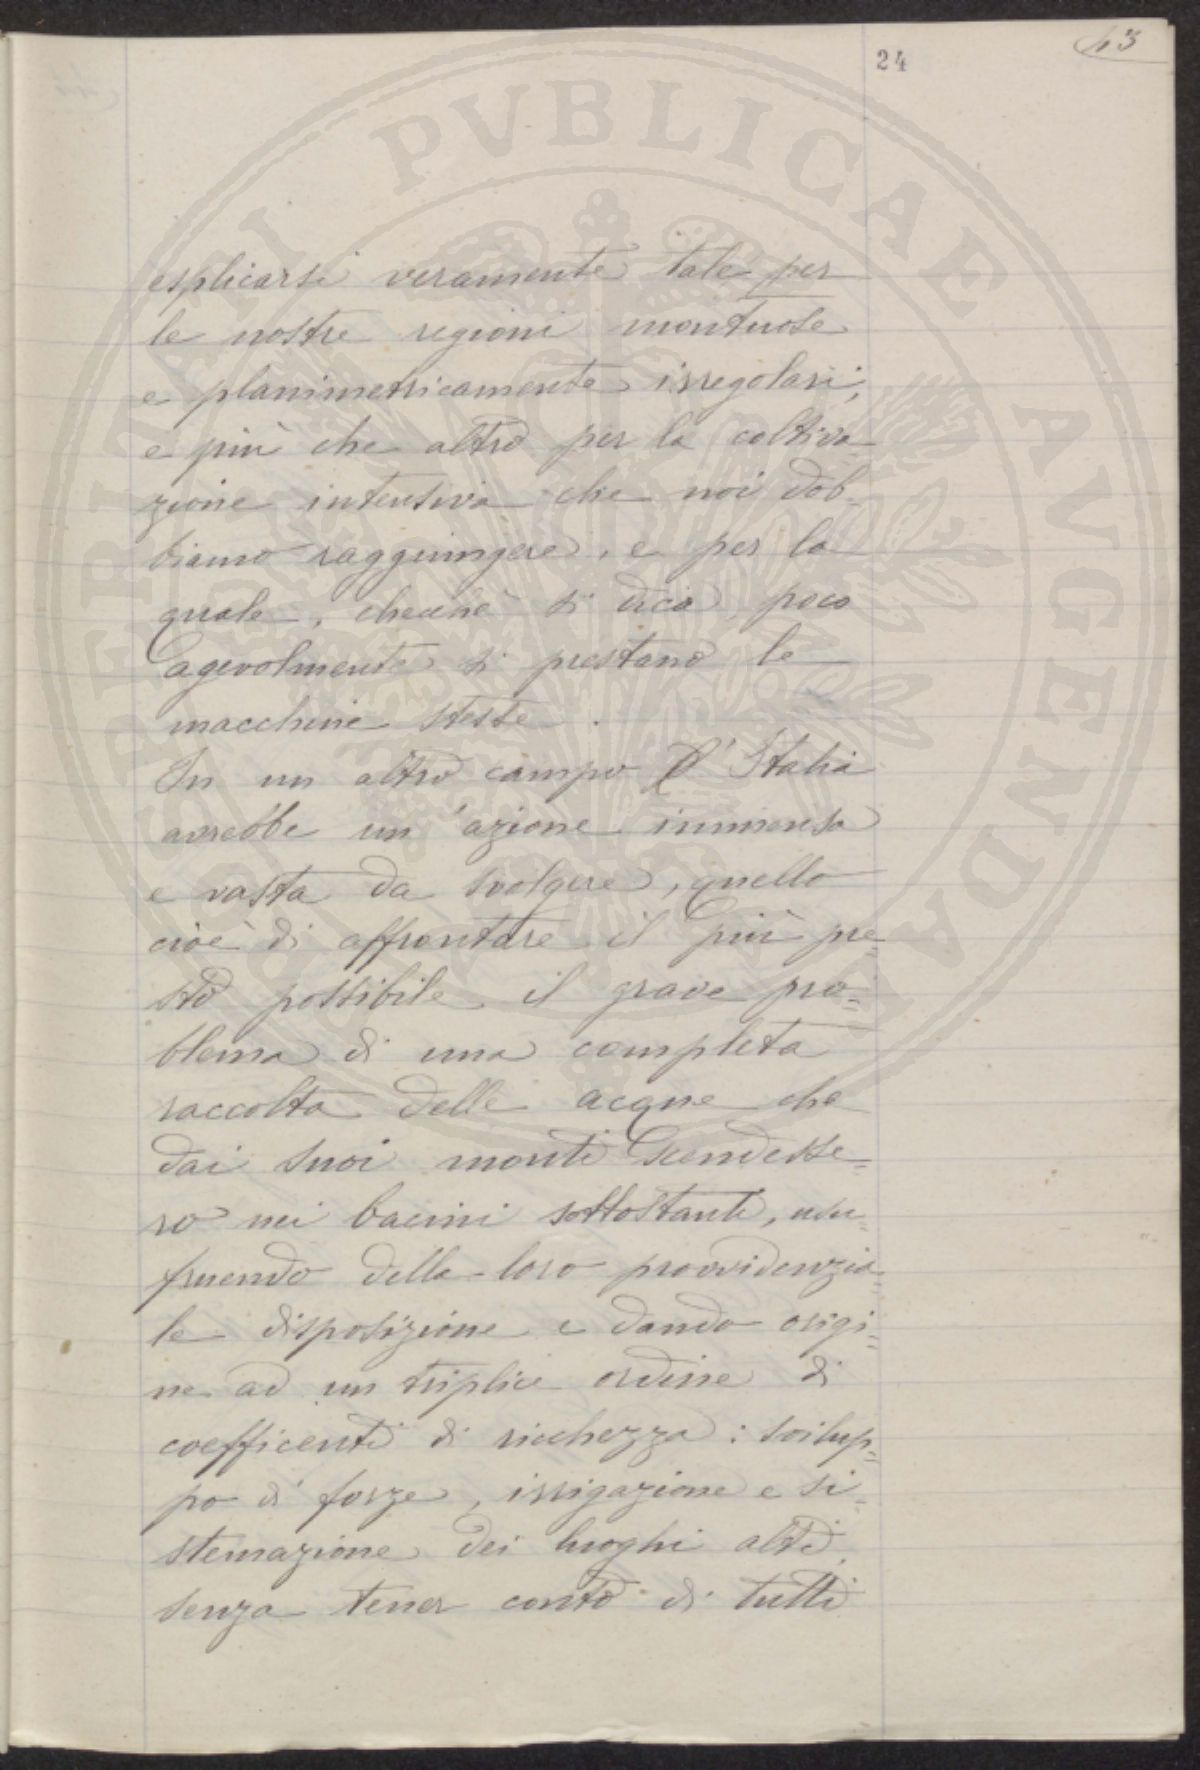 43
24
esplicarsi veramente tale per
le nostre regioni montuose
e planimetricamente irregolari,
e più che altro per la coltiva
zione intensiva che noi dob-
biamo raggiungere, e per la
quale, checchè si dica, poco
agevolmente si prestano le
macchine stesse.
In un altro campo l'Italia
avrebbe un'azione immensa
e vasta da svolgere, quello
cioè di affrontare il più pre
sto possibile il grave pro=
blema di una completa
raccolta delle acque che
dai suoi monti scendesse=
ro nei bacini sottostanti, usu=
fruendo della loro provvidenzia=
le disposizione e dando origi=
ne ad un triplice ordine di
coefficenti di ricchezza: svilup=
po di forze, irrigazione e si=
stemazione dei luoghi alti
senza tener conto di tutti
ASPERRIMAE REI PVBLICAE AVGENDA